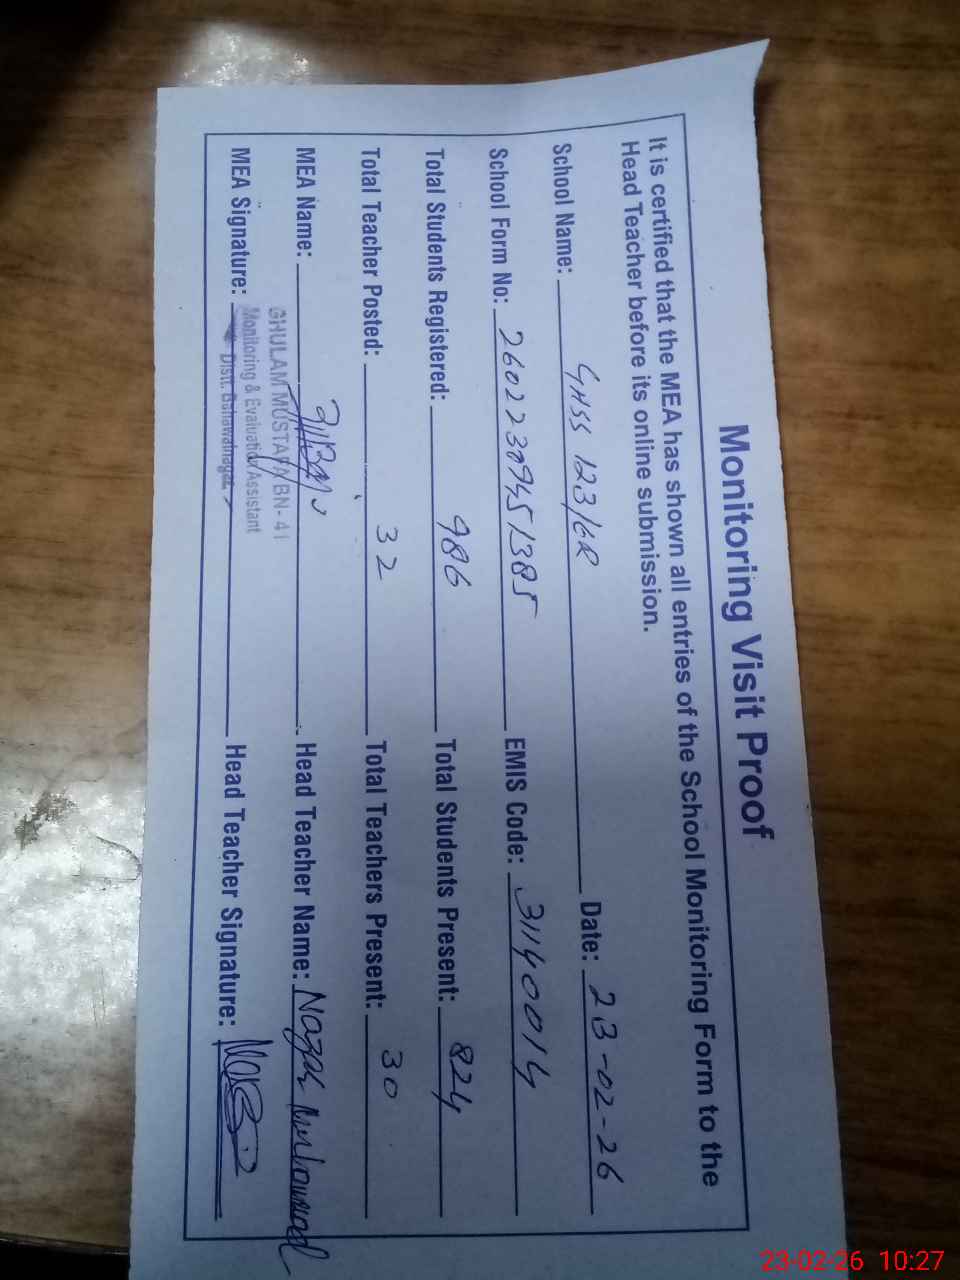 Monitoring Visit Proof
It is certified that the MEA has shown all entries of the School Monitoring Form to the
Head Teacher before its online submission.
School Name: GHSS 123/6R Date: 23-02-26
School Form No: 26022309451385 EMIS Code: 31140014
Total Students Registered: 986 Total Students Present: 824
Total Teacher Posted: 32 Total Teachers Present: 30
MEA Name: Head Teacher Name: Nazar
GHULAM MUSTAFA BN-41
Monitoring & Evaluation Assistant
MEA Signature: Distt. Bahawalnagar Head Teacher Signature:
23-02-26 10:27